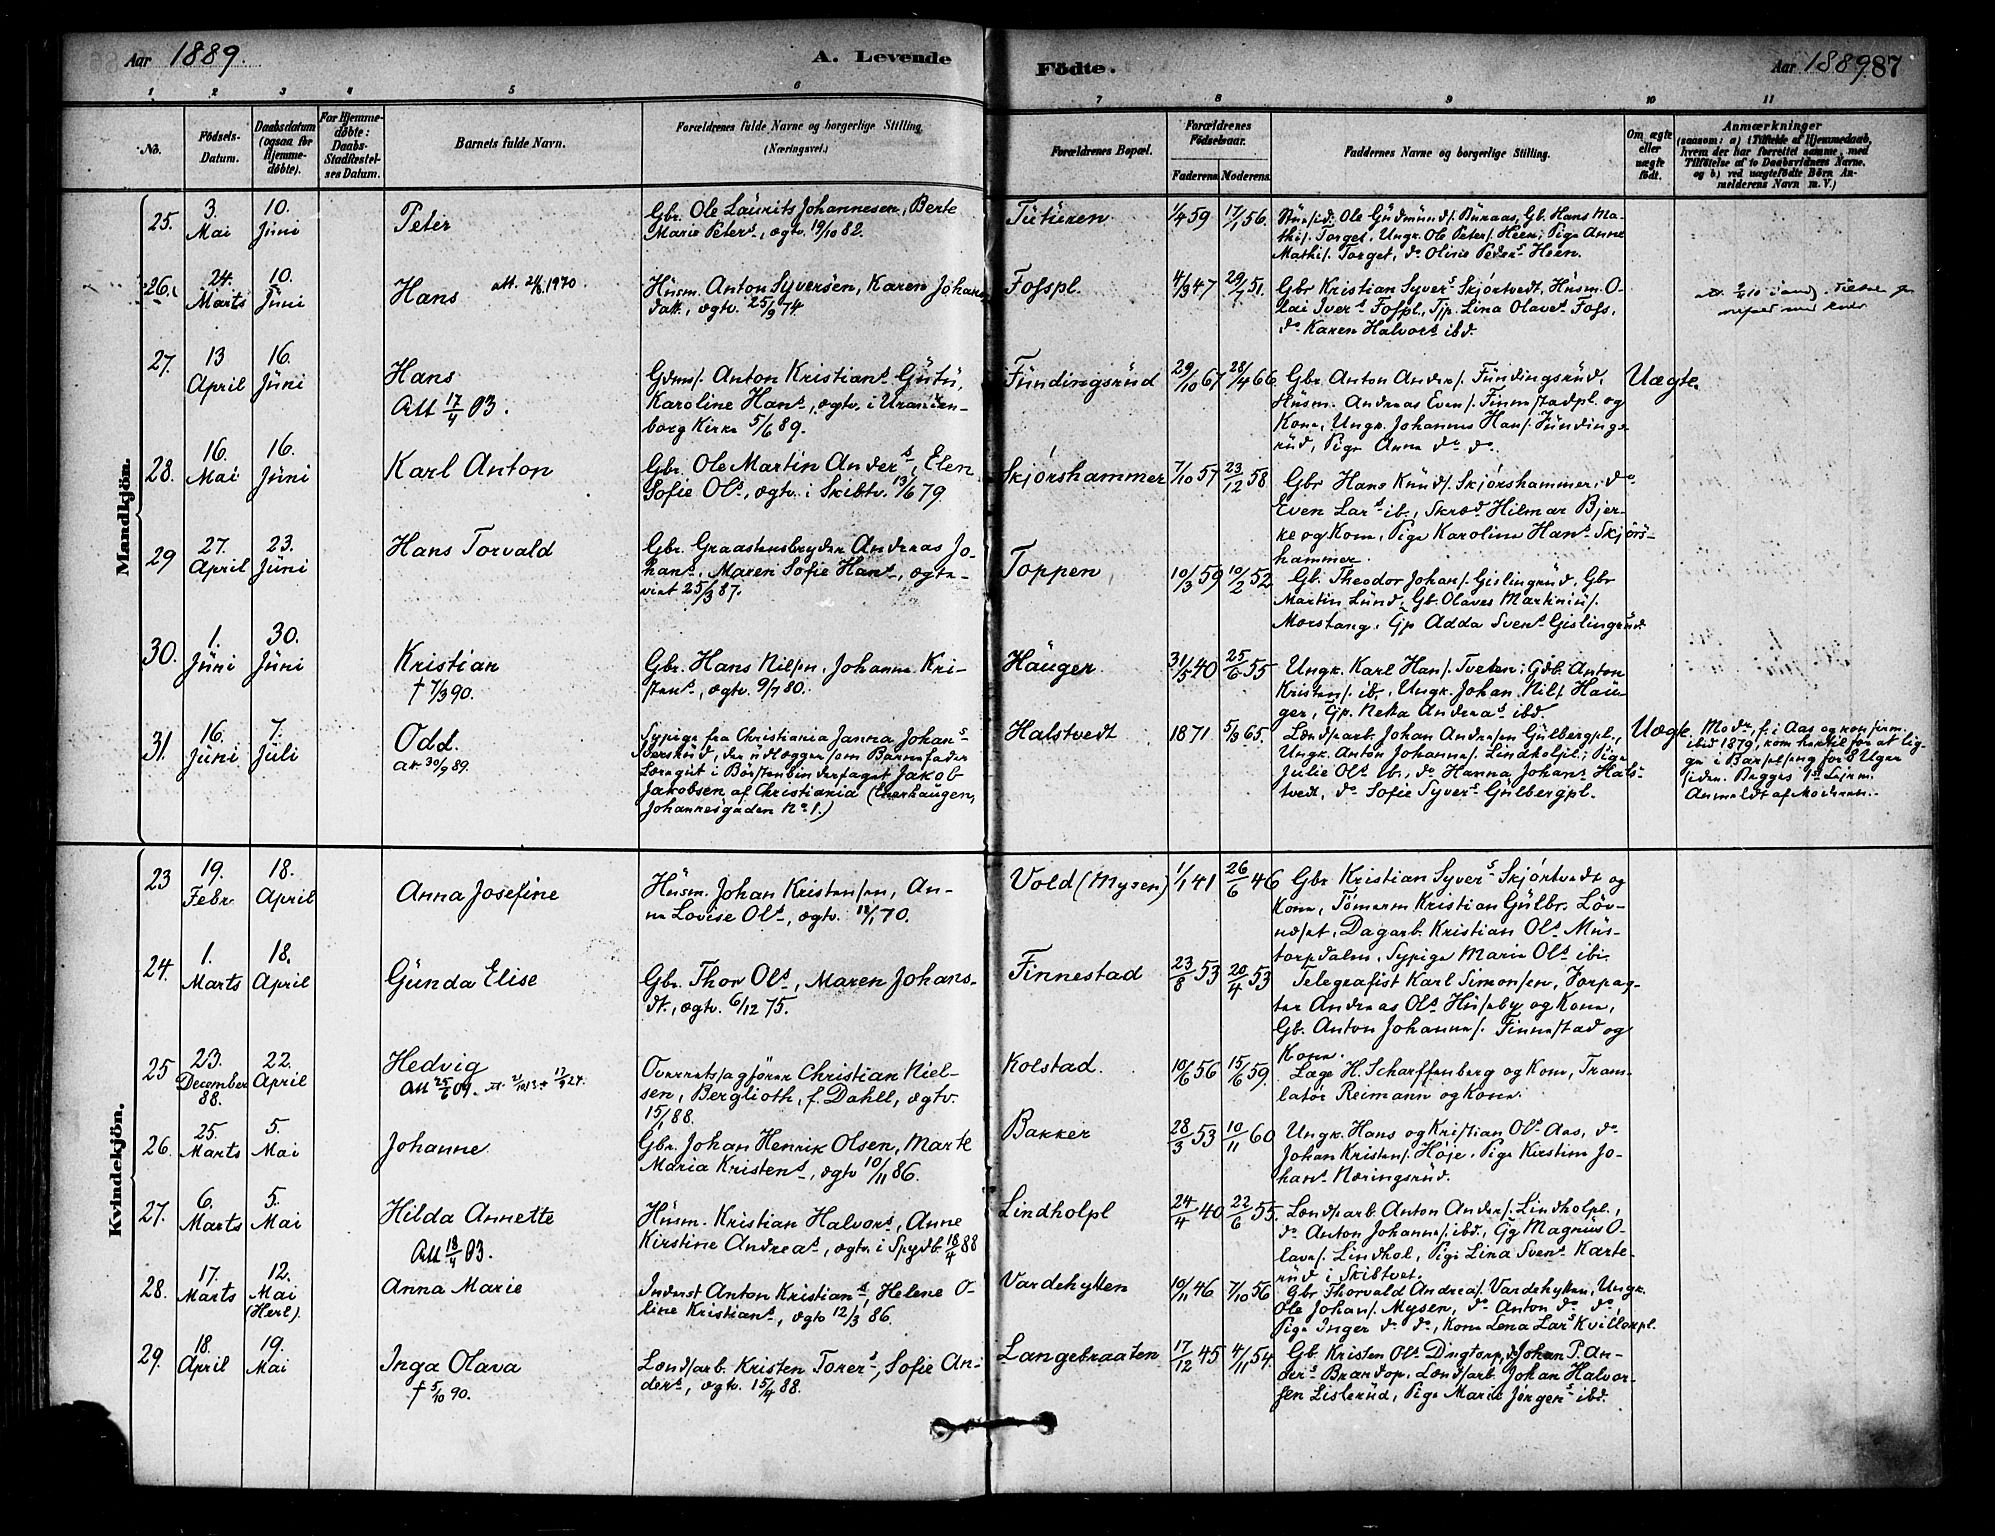 Aar 1889.
A. Levende
Födte.
Aar 1889.
87
1 2 3 4 5 6
7 8 9 10 11
No.
Födsels-
Datum.
Daabsdatum
(ogsaa for
Hjemme-
døbte).
For Hjemme-
døbte:
Daabs-
Stadfæstel-
ses Datum.
Barnets fulde Navn.
Forældrenes fulde Navne og borgerlige Stilling.
(Næringsvei.)
Forældrenes Bopæl.
Forældrenes
Födselsaar.
Faderens.
Moderens.
Faddernes Navne og borgerlige Stilling.
Om ægte
eller
uægte
födt.
Anmærkninger
(saasom: a) Tilfælde af Hjemmedaab,
hvem der har forrettet samme, med
Tilföielse af to Daabsvidners Navne.
og b) ved uægtefödte Börn An-
melderens Navn m. V.)
Mandkjön.
25.
3.
Mai
10.
Juni
Peter
Gbr. Ole Laurits Johannesen, Berte
Marie Peters., ægtv. 19/10 82.
Tuturen
1/4 59
17/1 56.
Ole Gudmunds. Buraas, Gb. Hans Ma-
this. Torget, Ungk. Ole Peters. Heen, Pige Anne
Mathis. Torget, do Oline Peders Heen.
26.
24.
Marts
10.
Juni
Hans
att. 24/8.1970.
Husm. Anton Syversen, Karen Johans
datt., ægtv. 25/9 74
Fosspl.
4/9 47
29/7 51.
Gbr Kristian Syvers Skjörtvedt, Husm. O-
lai Ivers Fosspl., Tjp. Lina Olaves Foss,
do Karen Halvors ibd.
27.
13
April
16.
Juni
Hans
Att 17/4 03.
Gdms. Anton Kristians Gutu,
Karoline Hans, ægtv. i Uranien-
borg Kirke 5/6 89.
Fundingsrud
29/10 67
28/4 66
Gbr Anton Anders. Fundingsrud,
Husm. Andreas Evens. Finnestadpl. og
Kone, Ungk. Johannes Hans. Fundings-
rud, Pige Anna do do.
Uægte.
28.
16.
Mai
16.
Juni
Karl Anton
Gbr. Ole Martin Anders, Elen
Sofie Ols, ægtv. i Skibtv. 13/6 79.
Skjörshammer
7/10 57
23/12 58
Gbr Hans Knuds. Skjörshammer, do
Even Lars ib., Skræd. Hilmar Bjer-
ke og Kone, Pige Karoline Hans Skjörs-
hammer.
29
27.
April
23.
Juni
Hans Torvald
Gbr. Graastensbryder Andreas Jo-
hans, Maren Sofie Hans, ægte-
viet 25/3 87.
Toppen
10/3 59
10/2 52
Gb. Theodor Johans. Gislingrud, Gbr
Martin Lund, Gb. Olaves Martinius.
Morstang, Gp Adda Svens Gislingrud.
30.
1.
Juni
30.
Juni
Kristian
† 7/3 90.
Gbr. Hans Nilsen, Johanne Kri-
stens, ægtv. 9/7 80.
Hauger
31/5 40
25/6 55
Ungk. Karl Hans. Tveten, Gdb. Anton
Kristens. ib., Ungk. Johan Nils. Hau-
ger, Gp. Netta Andreas ibd.
31.
16.
Juni
7.
Juli
Odd.
at. 30/9 89.
Sypige fra Christiania Janna Johans
Sverstud, der udlægger som Barnefader
Læregut i Börstenbinderfaget Jakob
Jakobsen af Christiania (Enerhaugen,
Johannesgaden No 1.)
Halstvedt
1871
5/9 65.
Lændsarb. Johan Andresen Gulbergpl.,
Ungk. Anton Johannes. Lindholpl., Pige
Julie Ols ib., do Hanna Johans Hals-
tvedt, do Sofie Syvers Gulbergpl.
Uægte
Modr. f. i Aas og konfirm.
ibid 1879, kom hertil for at lig-
ge i Barselseng for 8 Uger
siden. Begges 1ste Leierm.
Anmeldt af Moderen.
Kvindekjön.
23
19.
Febr.
18.
April
Anna Josefine
Husm. Johan Kristensen, An-
ne Lovise Ols, ægtv. 12/1 70.
Vold (Mysen)
1/1 41
26/6 46
Gbr Kristian Syvers Skjörtvedt og
Kone, Tömerm Kristian Gulbr. Löv-
næset, Dagarb. Kristian Ols Mus-
torpdalen, Sypige Marie Ols ibi
24.
1.
Marts
18.
April
Gunda Elise
Gbr. Thor Ols, Maren Johans-
dt., ægtv. 6/12 75.
Finnestad
23/8 53
20/4 53
Telegrafist Karl Simonsen, Forpag-
ter Andreas Ols Huseby og Kone,
Gb. Anton Johannes. Finnestad og
Kone.
25
23.
December
88.
22.
April
Hedvig
Att 25/6 09.
Overretssagförer Christian Niel-
sen, Berglioth, f. Dahll, ægtv.
15/1 88.
Kolstad.
10/6 56
15/6 59.
Læge H. Scharffenberg og Kone, Trans-
latör Reimann og Kone.
26.
25.
Marts
5.
Mai
Johanne
Gbr. Johan Henrik Olsen, Marte
Maria Kristens, ægtv 10/11 86.
Bakker
28/3 53
10/11 60
Ungk. Hans og Kristian Ols Aas, do
Johan Kristens. Höje, Pige Kirsten Jo-
hans Næringsrud.
27.
6.
Marts
5.
Mai
Hilda Annette
Att 18/4 03.
Husm. Kristian Halvors, Anne
Kirstine Andreas, ægtv. i Spydb. 18/4 88
Lindholpl
24/4 40
22/6 55.
Lændsarb. Anton Anders. Lindholpl.,
do Anton Johannes. ibd., Gg Magnus O-
laves. Lindhol, Pige Lina Svens Karte-
rud i Skibtvet.
28.
17.
Marts
12.
Mai
(Herl).
Anna Marie
Inderst Anton Kristians, Helene O-
line Kristians, ægtv 12/3 86.
Vardehytten
10/11 46
7/10 56
Gbr Thorvald Andreas. Vardehytten, Ungk.
Ole Johans. Mysen, do Anton do do,
Pige Inger do do, Kone Lena Lars Kvillerpl.
29.
18.
April
19.
Mai
Inga Olava
† 5/10 90.
Lændsarb. Kristen Torers, Sofie An-
ders, ægtv. 15/4 88.
Langebraaten
17/12 45
4/11 54.
Gb. Kristen Ols Dugtorp, do Johan P. An-
ders Brandop, Lændsarb. Johan Halvor-
sen Lislerud, Pige Marie Jörgens ibd.